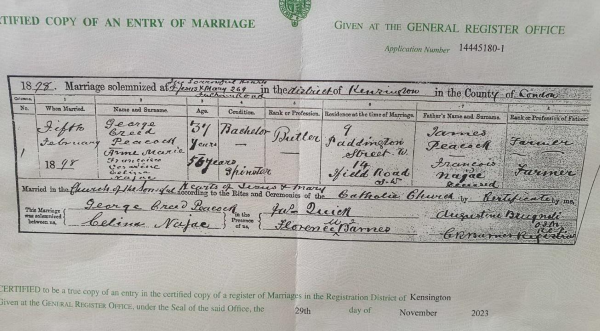 CERTIFIED COPY OF AN ENTRY OF MARRIAGE
GIVEN AT THE GENERAL REGISTER OFFICE
Application Number 14445180-1
1898. Marriage solemnized at The Sorrowful Hearts of Jesus & Mary 269 Fulham Road in the district of Kensington in the County of London
No. When Married. Name and Surname. Age. Condition. Rank or Profession. Residence at the time of Marriage. Father's Name and Surname. Rank or Profession of Father.
1 Fifth February 1898
George Creed Peacock 57 years Bachelor Butler 9 Paddington Street W. James Peacock Farmer
Anne Marie Françoise Celina Najac 56 years — Spinster 14 Road S.W. Francois Najac Deceased Farmer
Married in the Church of the Sorrowful Hearts of Jesus & Mary according to the Rites and Ceremonies of the Catholic Church by Certificate by me,
This Marriage was solemnized between us, George Creed Peacock Celina Najac in the Presence of us, Jas. Quick Florence Barnes Augustine
Registrar
CERTIFIED to be a true copy of an entry in the certified copy of a register of Marriages in the Registration District of Kensington
Given at the GENERAL REGISTER OFFICE, under the Seal of the said Office, the 29th day of November 2023